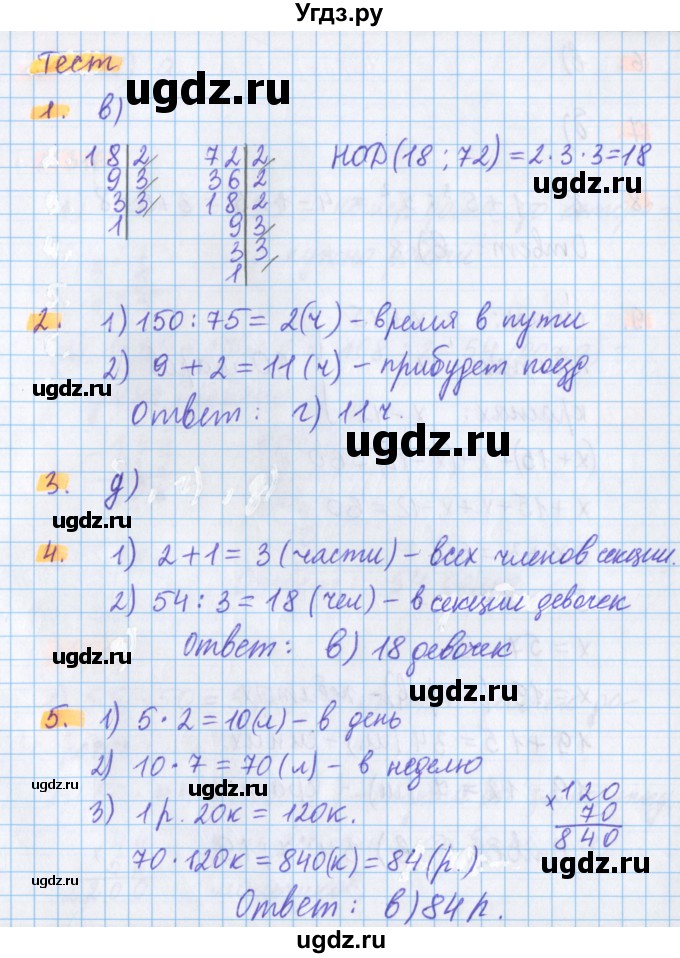 Угдз.ру
Тест
1. в)
ugdz.ru
18|2 72|2 НОД(18; 72) = 2·3·3=18
9|3 36|2
3|3 18|2
1| 9|3
3|3
1|
ugdz.ru
2. 1) 150:75 = 2(ч) – время в пути
2) 9 + 2 = 11 (ч) – прибудет поезд
ugdz.ru
ugdz.ru
Ответ: г) 11 ч.
ugdz.ru
3. д)
ugdz.ru
4. 1) 2+1 = 3 (части) – всех членов секции.
2) 54 : 3 = 18 (чел) – в секции девочек
ugdz.ru
Ответ: в) 18 девочек
ugdz.ru
5. 1) 5·2 = 10(л) – в день
2) 10·7 = 70(л) – в неделю
ugdz.ru
3) 1р. 20к = 120к.
×120
70
840
70·120к = 840(к) = 84(р.)
ugdz.ru
ugdz.ru
Ответ: в) 84 р.
ugdz.ru